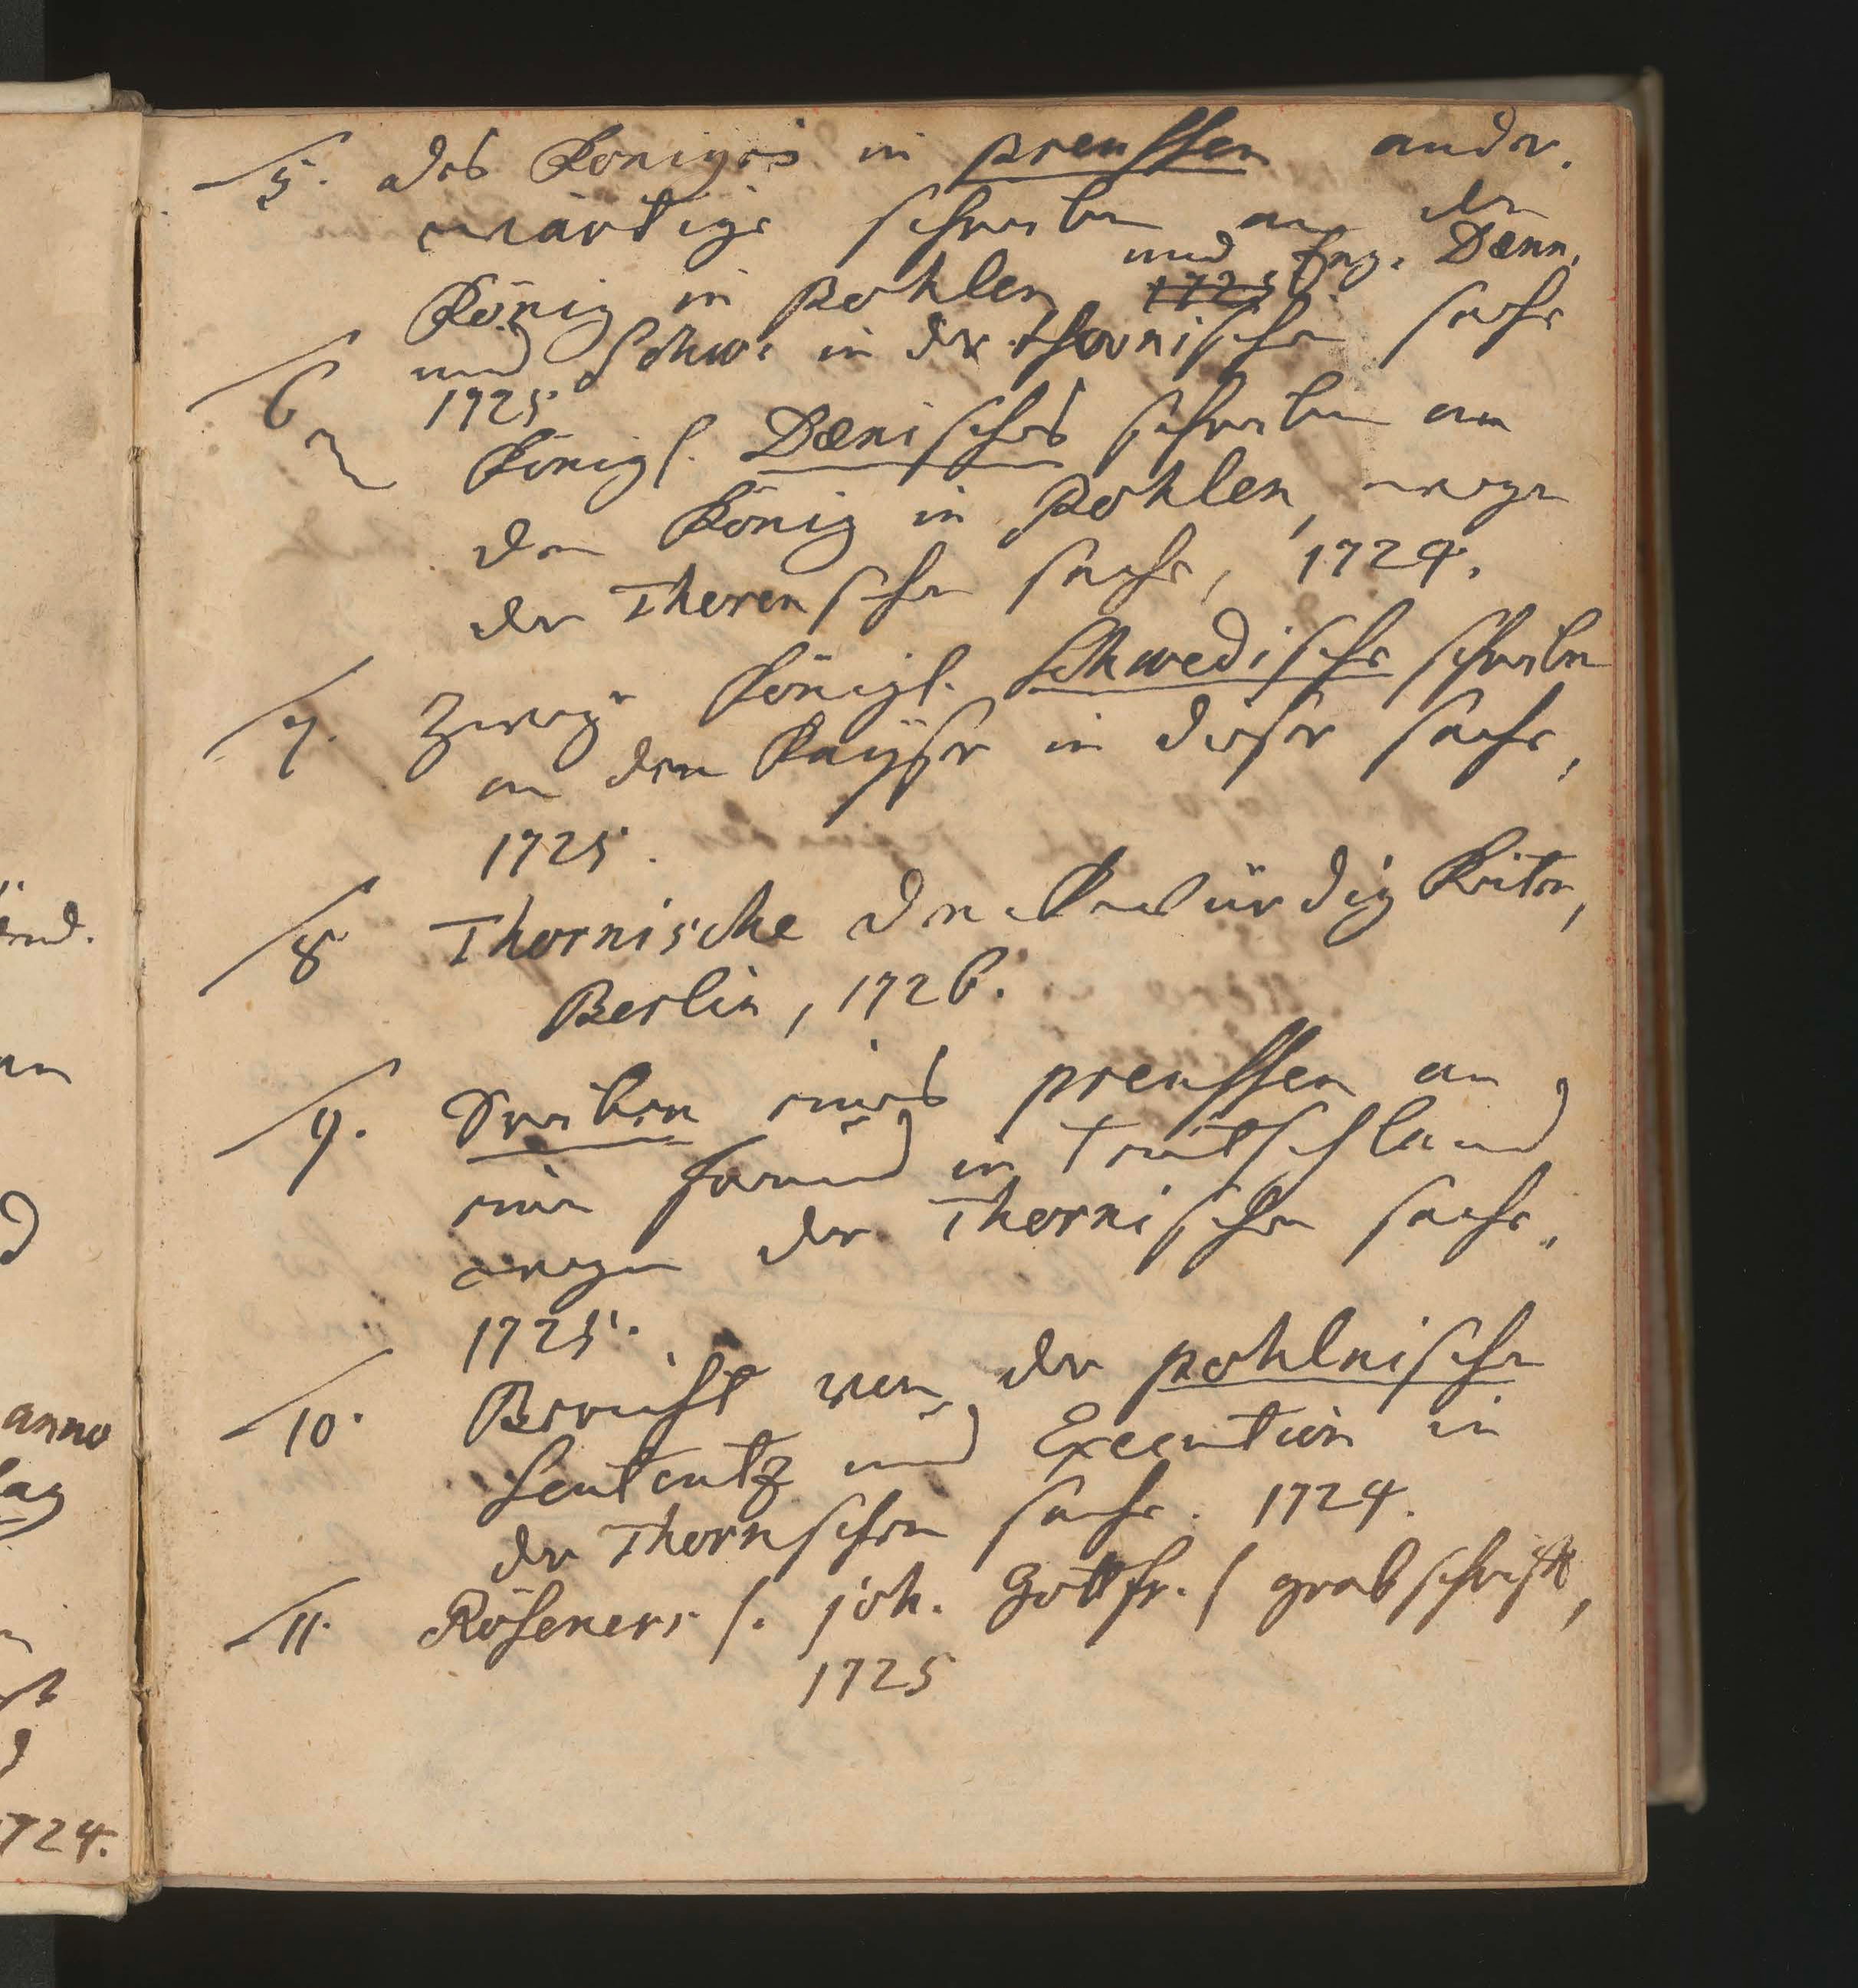 5. des Königes in preussen ander-
wärtige schreiben an den
König in Pohlen 1725 und Eng. Dænn.
und Schw. in der thornischen sache
1725
6 Königl. Dænisches schreiben an
den König in Pohlen, wegen
der Thorenschen sache, 1724.
7. Zweÿ Königl. Schwedische schreiben
an den Kayser in dieser sache,
1725.
8 Thornische Denckwürdigkeiten,
Berlin, 1726.
9. Sreiben eines preussen an
einen freund in Teutschland
wegen der Thornischen sache.
1725.
10. Bericht von der pohlnischen
Sententz und Execution in
der Thornschen sache. 1724.
11. Röseners /. joh. Gottfr. / grabschrifft,
1725
anno
724.